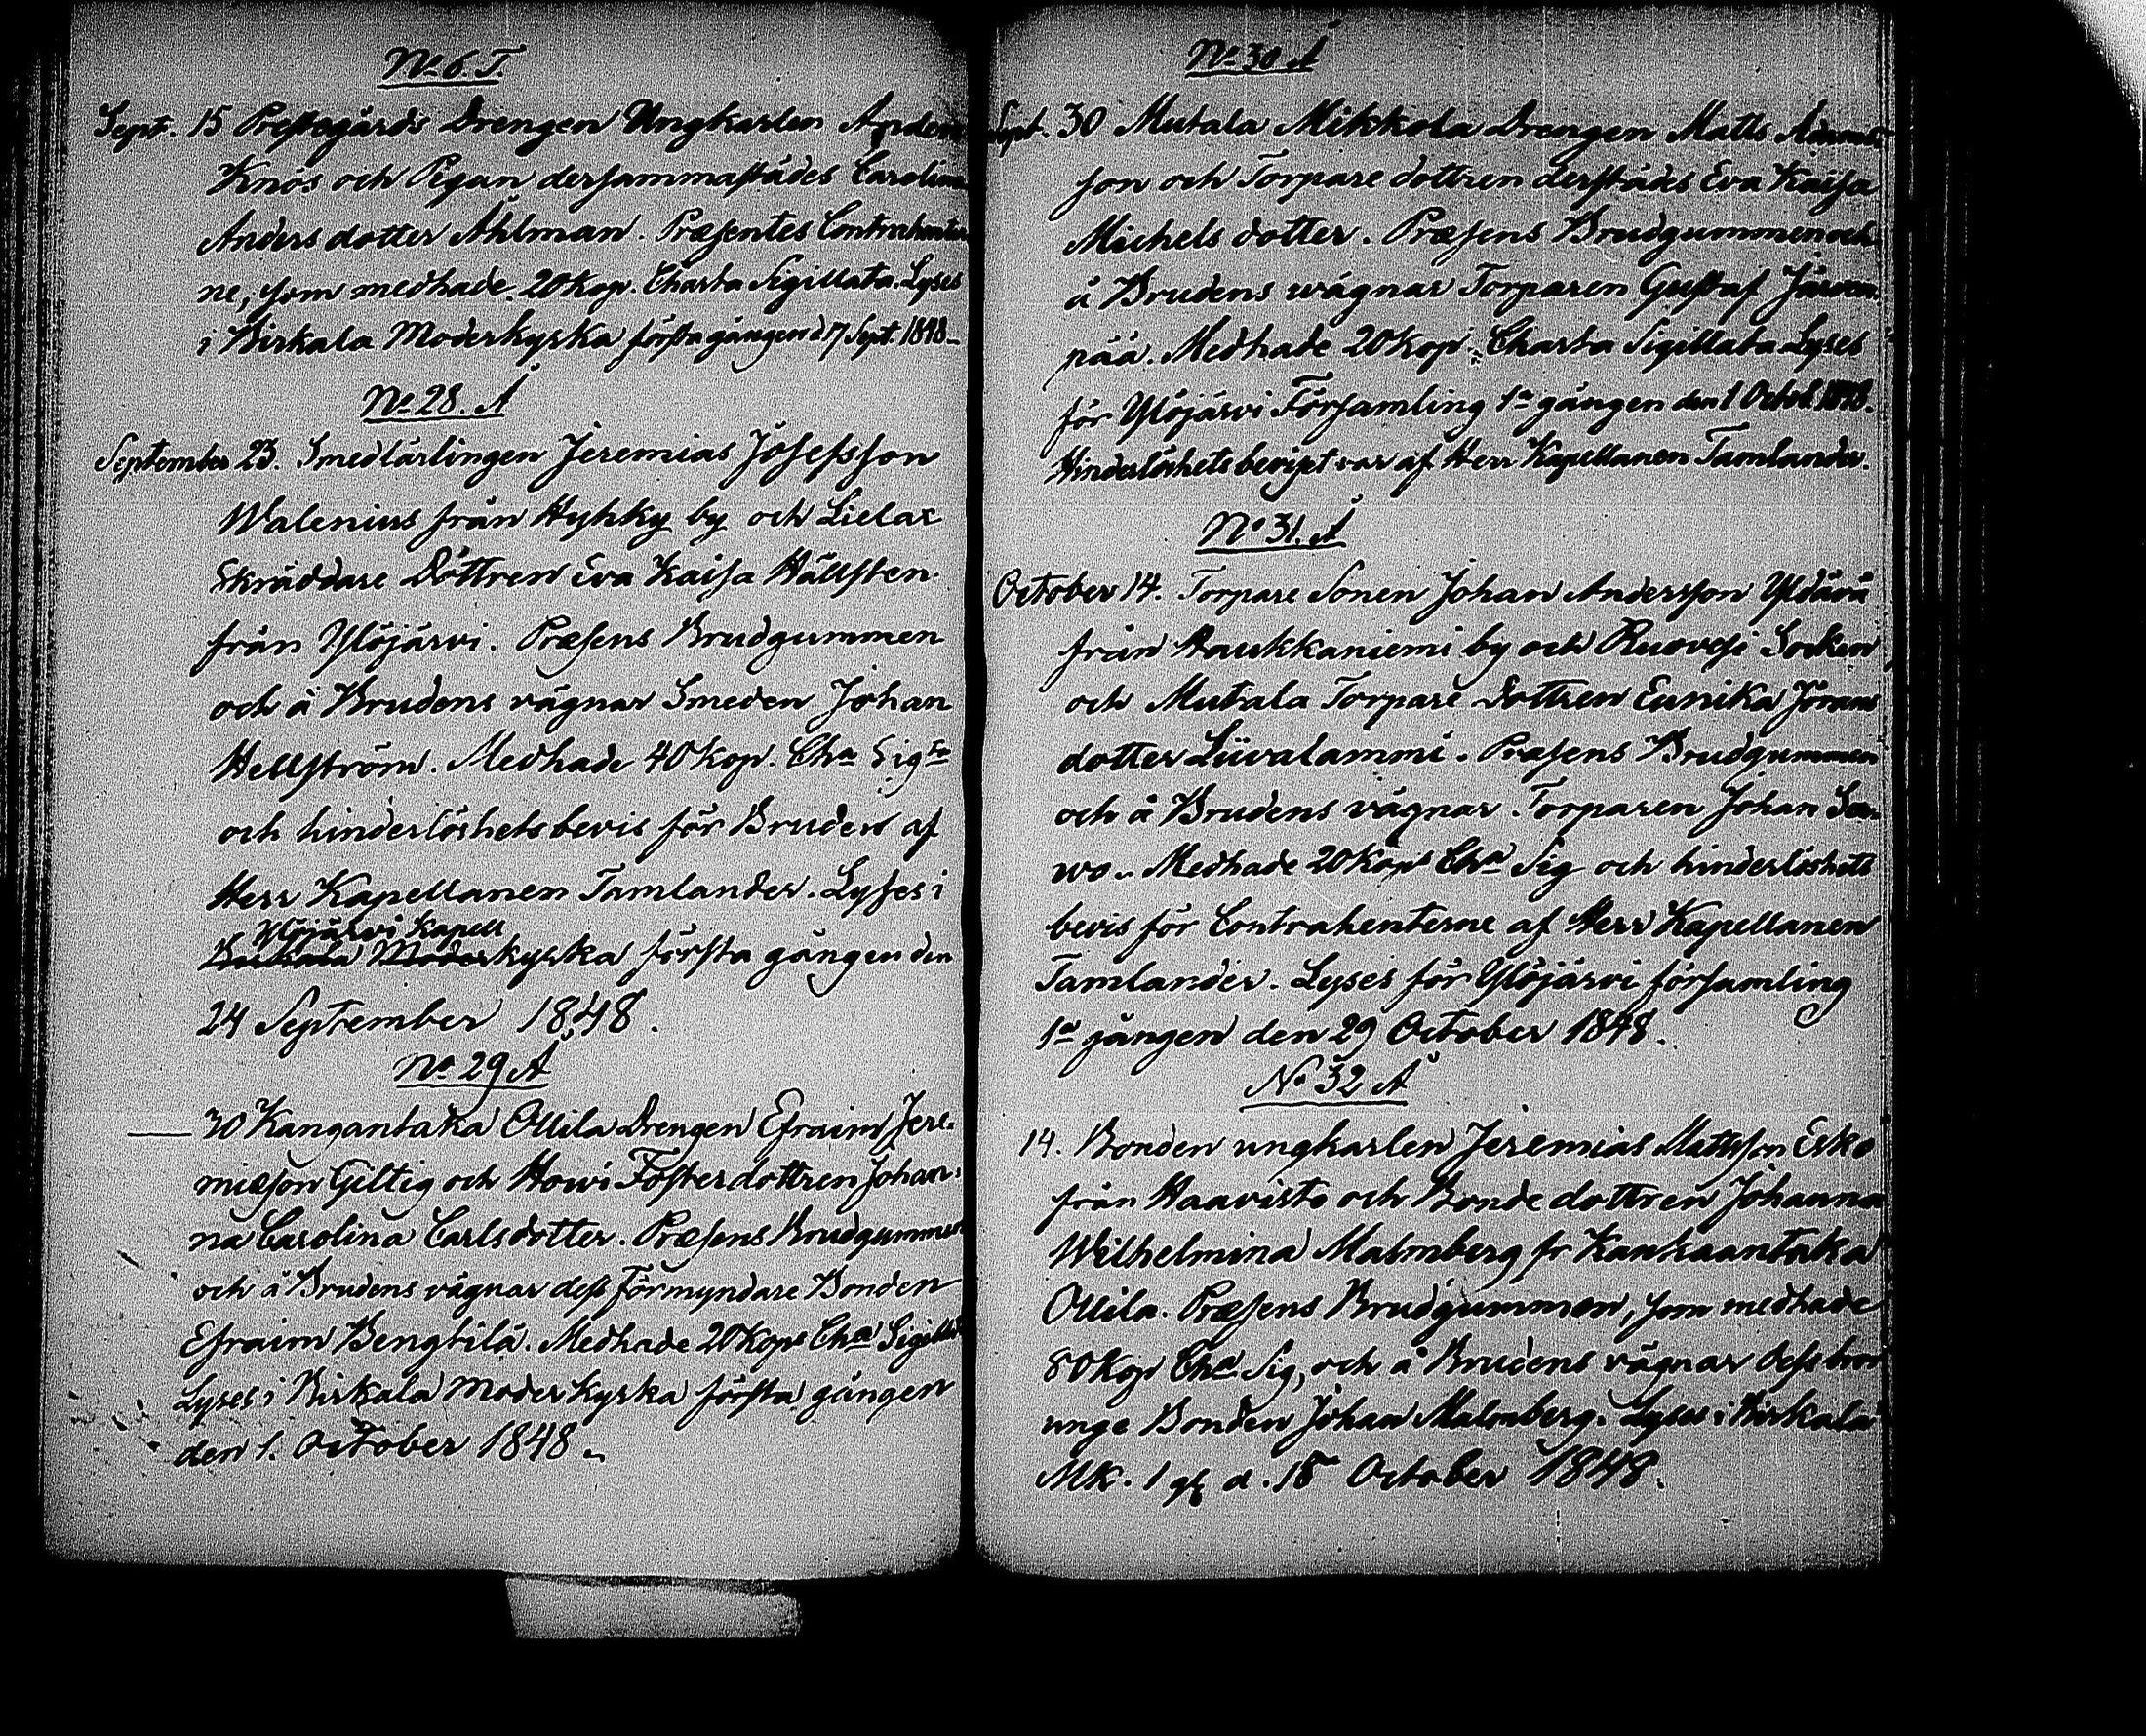 No 6. T.
Sept. 15 Prestegårds Drengen Ungkarlen Anders
Knös och Pigan dersammastädes Carolina
Anders dotter Åhlman. Præsentes Contrahenter
ne, som medhade 20 kop. Charta Sigillata. Lyses
i Birkala Moderkyrka första gången d 17 Sept. 1848.
No 28. Å
September 23. Smedlärlingen Jeremias Josefsson
Walenius från Hyhky by och Lielax
Skräddare Dottren Eva Kaisa Hällsten
från Ylöjärvi. Præsens Brudgummen
och å Brudens vägnar Smeden Johan
Hellström. Medhade 40 kop. Cha Sigta
och hinderlöshets bevis för Bruden af
Herr Kapellanen Tamlander. Lyses i
Ylöjärvi Kapell
Birkala Moderkyrka första gången den
24 September 1848.
No 29 Å
30 Kangantaka Ollila Drengen Efraim Jere-
miæson Giltig och Howi Fosterdottren Johan-
na Carolina Carlsdotter. Præsens Brudgummen
och å Brudens vägnar dess Förmyndare Bonden
Efraim Bengtilä. Medhade 20 Kop Cha Sigilla
Lyses i Birkala Moderkyrka första gången
den 1. October 1848.
No 30 Å
Sept. 30 Mutala Mikkola Drengen Matts
son och Torpare dottren derstädes Eva Kaisa
Michels dotter. Præsens Brudgummen och
å Brudens wägnar Torparen Gustaf Järven
pää. Medhade 20 kop. Charta Sigillata Lyses
för Ylöjärvi Församling 1a gången den 1 Octob. 1848.
Hinderlöshetsbevist var af Herr Kapellanen Tamlander.
No 31. Å
October 14. Torpare Sonen Johan Andersson
från Haukkaniemi by och Ruovesi Socken
och Mutala Torpare Dottren Eunika Jörans
dotter Liivalammi. Præsens Brudgummen
och å Brudens vägnar Torparen Johan
wo. Medhade 20 Kops Cha Sig och hinderlöshets
bevis för Contrahenterne af Herr Kapellanen
Tamlander. Lyses för Ylöjärvi församling
1a gången den 29 October 1848.
No 32 Å
14. Bonden ungkarlen Jeremias Mattsson Esko
från Haavisto och Bonde dottren Johanna
Wilhelmina Malmberg fr Kankaantaka
Ollila. Præsens Brudgummen, som medhade
80 Kop Cha Sig, och å Brudens vägnar dess bror
unge Bonden Johan Malmberg. Lyses i Birkala
MK. 1 gg d. 15 October 1848.